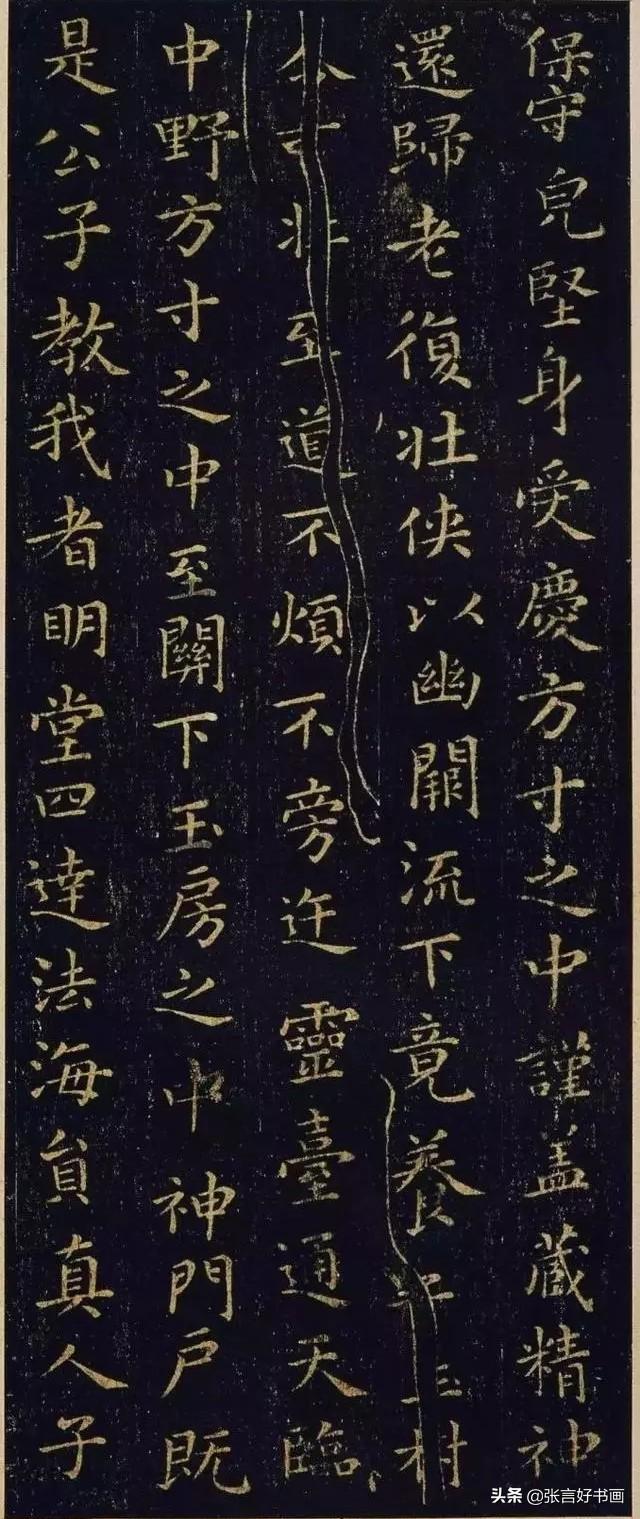 保守皃堅身受慶方寸之中謹盖藏精神
還歸老復壯俠以幽闕流下竟養
至道不煩不旁迕靈臺通天臨
中野方寸之中至關下玉房之中神門戶既
是公子教我者明堂四達法海貟真人子
头条 @张言好书画